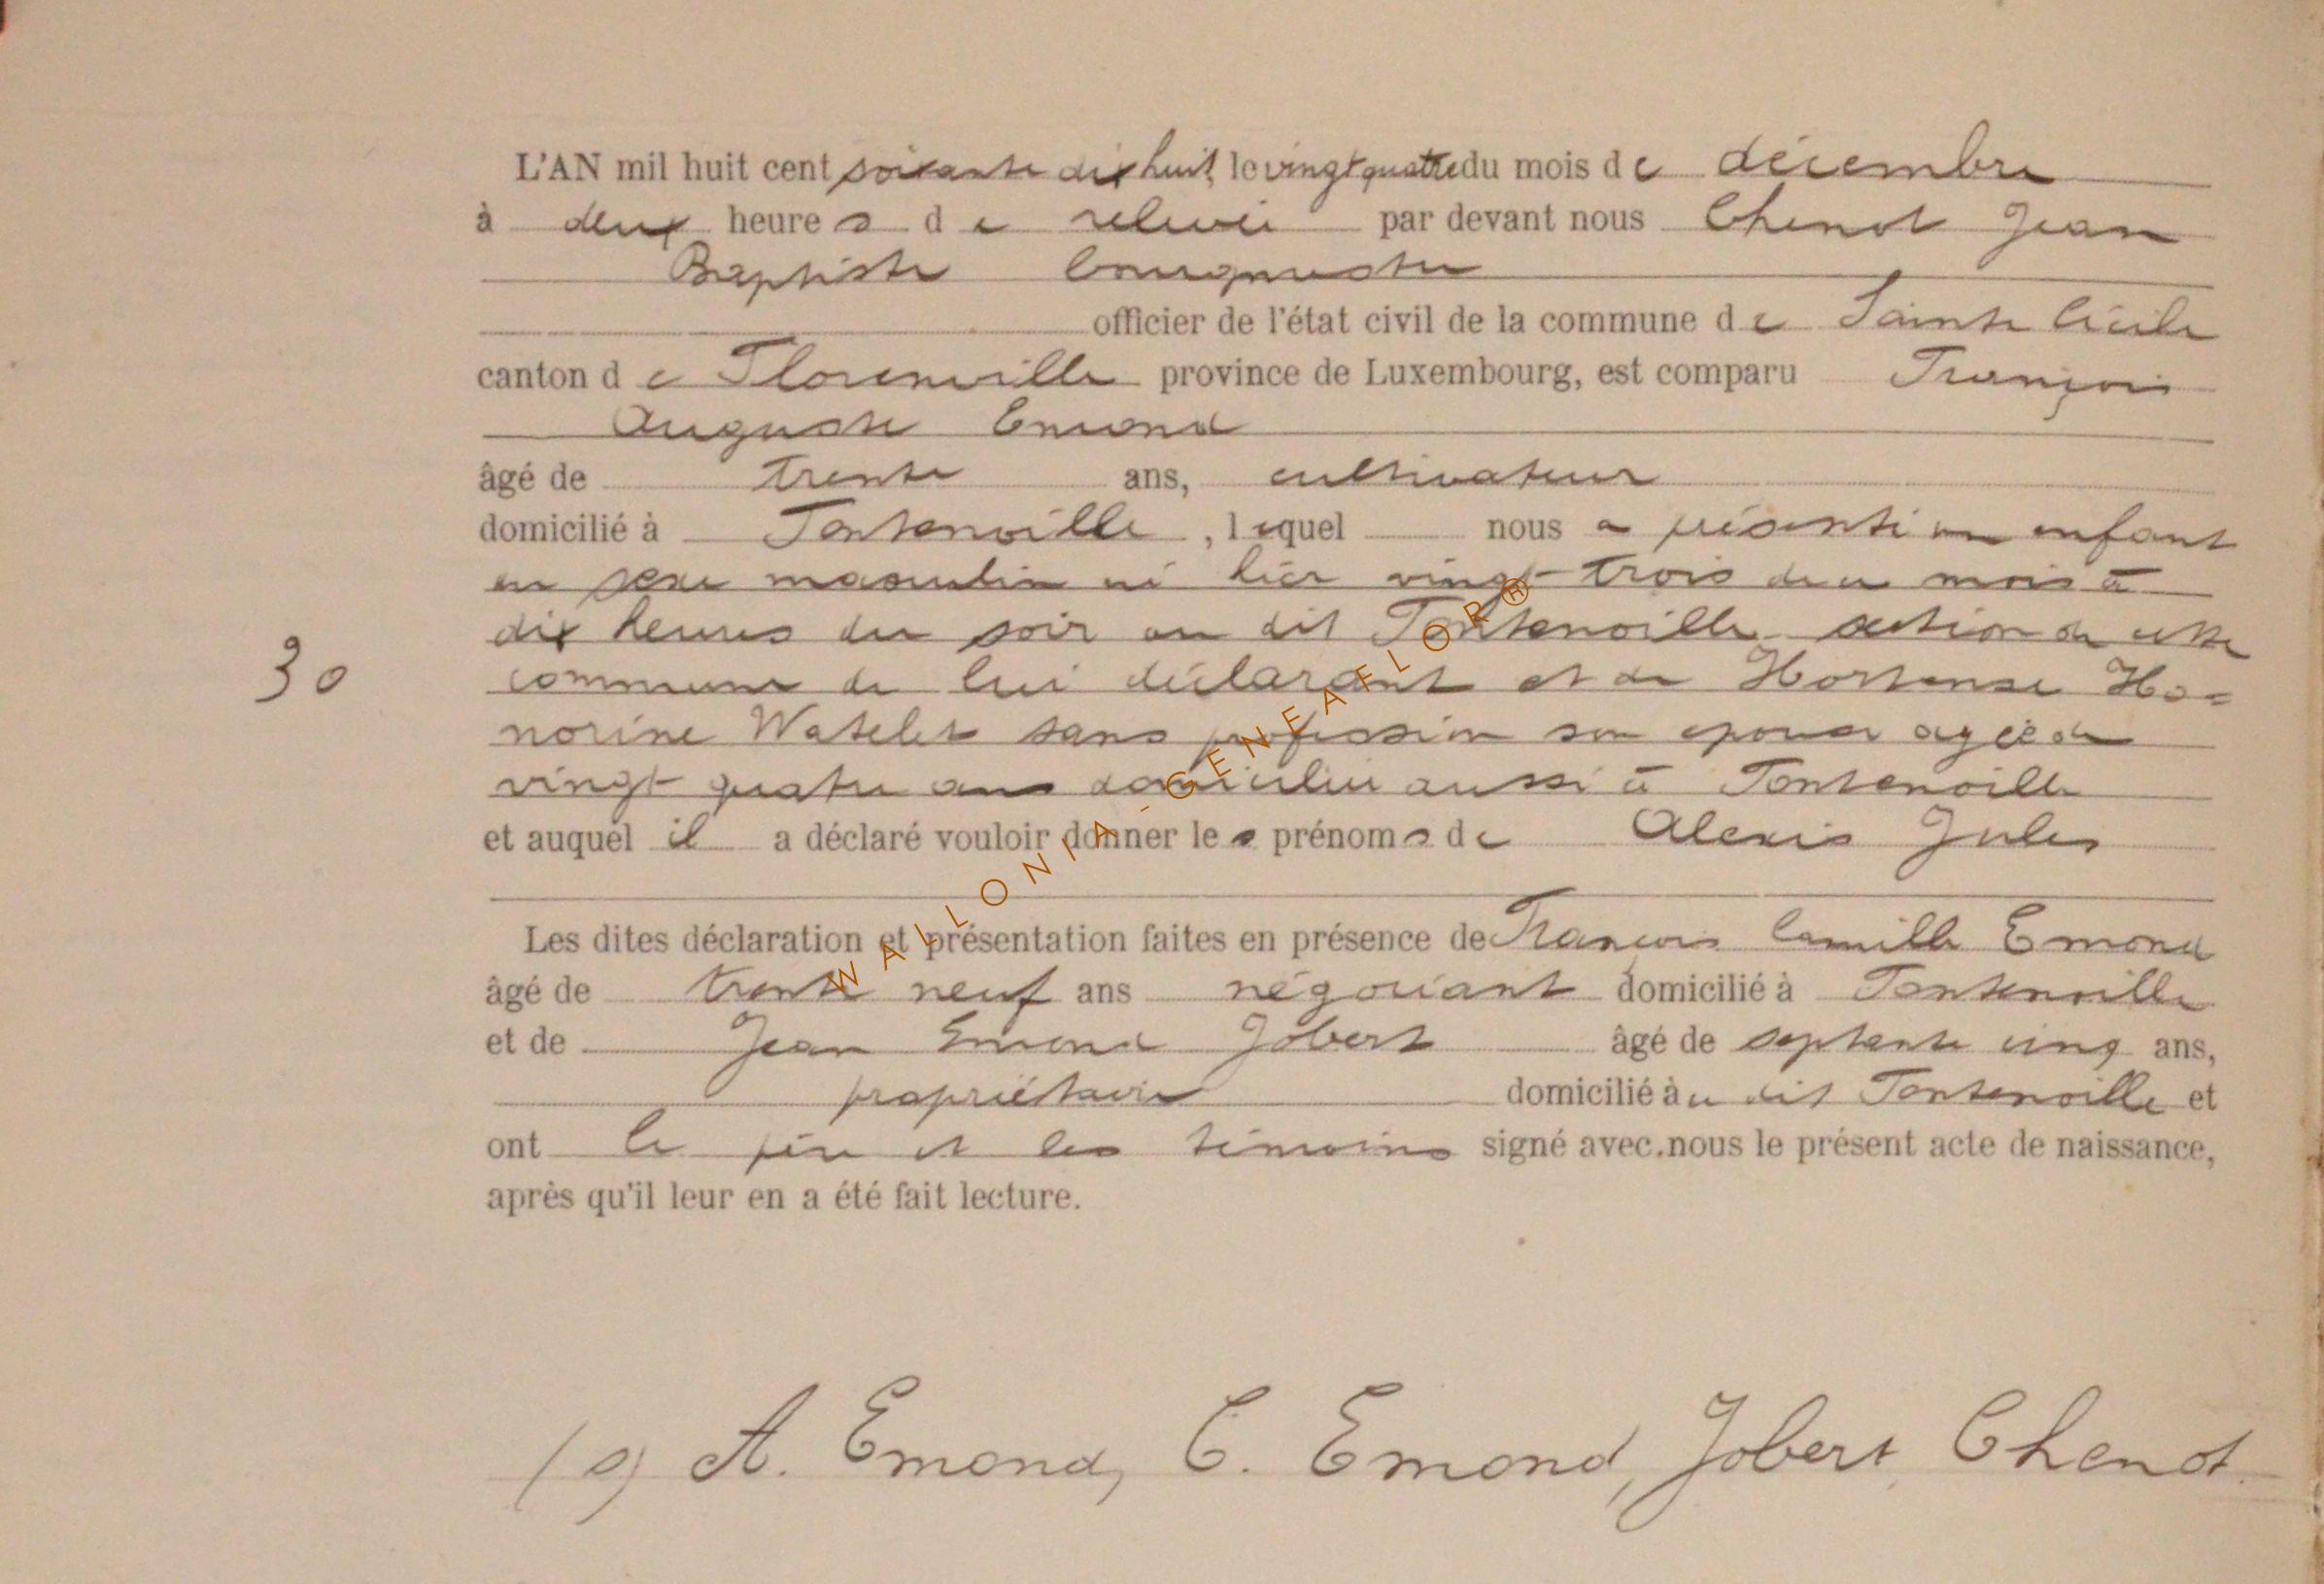 L'AN mil huit cent soixante dix huit, le vingt quatre du mois de décembre
à deux heures de relevée par devant nous Chenot Jean
Baptiste bourgmestre
officier de l'état civil de la commune de Sainte Cécile
canton de Florenville province de Luxembourg, est comparu François
Auguste Emond
âgé de trente ans, cultivateur
domicilié à Fontenoille, lequel nous a présenté un enfant
du sexe masculin né hier vingt-trois de ce mois à
dix heures du soir au dit Fontenoille section de cette
commune de lui déclarant et de Hortense Ho=
norine Watelet sans profession son épouse agée de
vingt-quatre ans domiciliée aussi à Fontenoille
et auquel il a déclaré vouloir donner les prénoms de Alexis Jules
Les dites déclaration et présentation faites en présence de François Camille Emond
âgé de trente neuf ans négociant domicilié à Fontenoille
et de Jean Emond Jobert âgé de septante cinq ans,
propriétaire domicilié au dit Fontenoille et
30
ont le père et les témoins signé avec nous le présent acte de naissance,
après qu'il leur en a été fait lecture.
(s) A. Emond, C. Emond, Jobert, Chenot
WALLONIA-GENEAFLOR®